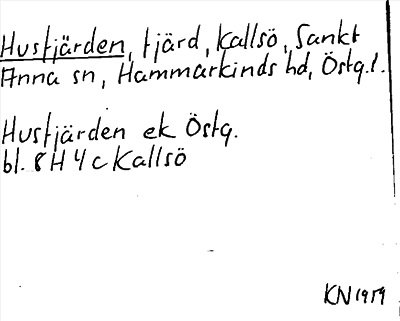 Husfjärden, fjärd, Kallsö, Sankt
Anna sn, Hammarkinds hd, Östg.l.
Husfjärden ek Östg.
bl. 8 H 4 c Kallsö
KN 1959